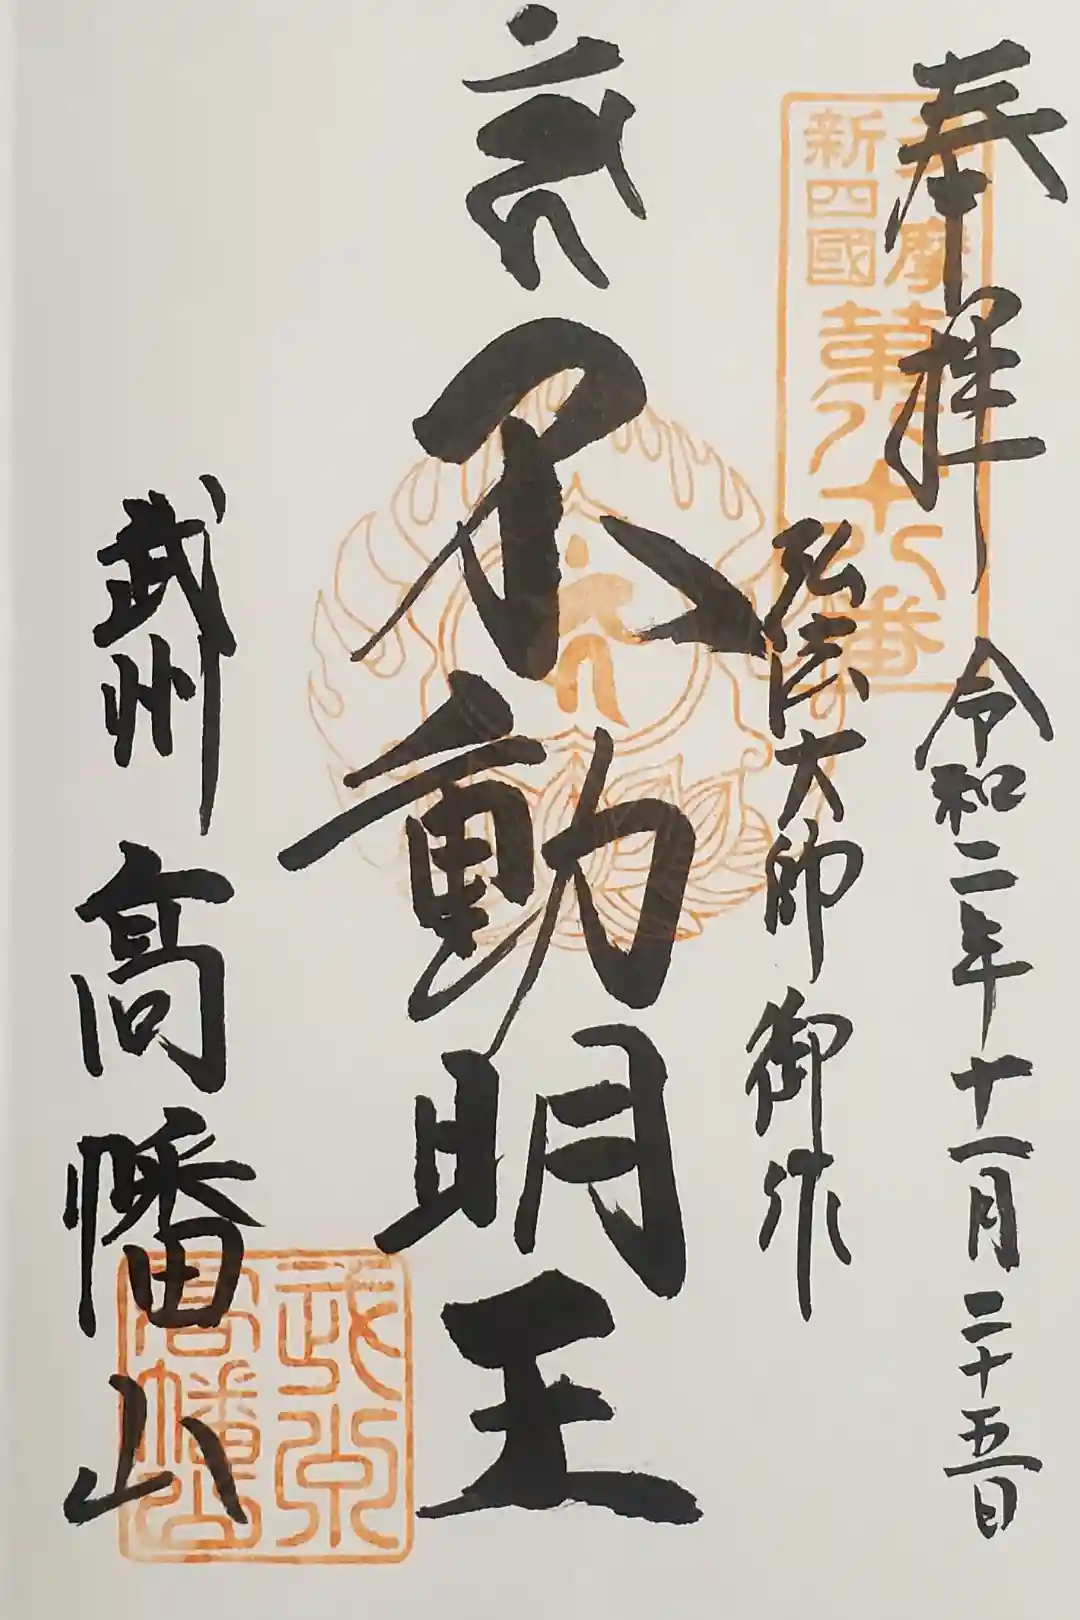 奉拝
令和二年十一月二十五日
弘法大師御作
不動明王
武州
髙幡山
多摩
新四國
第八十八番
武州
髙幡山